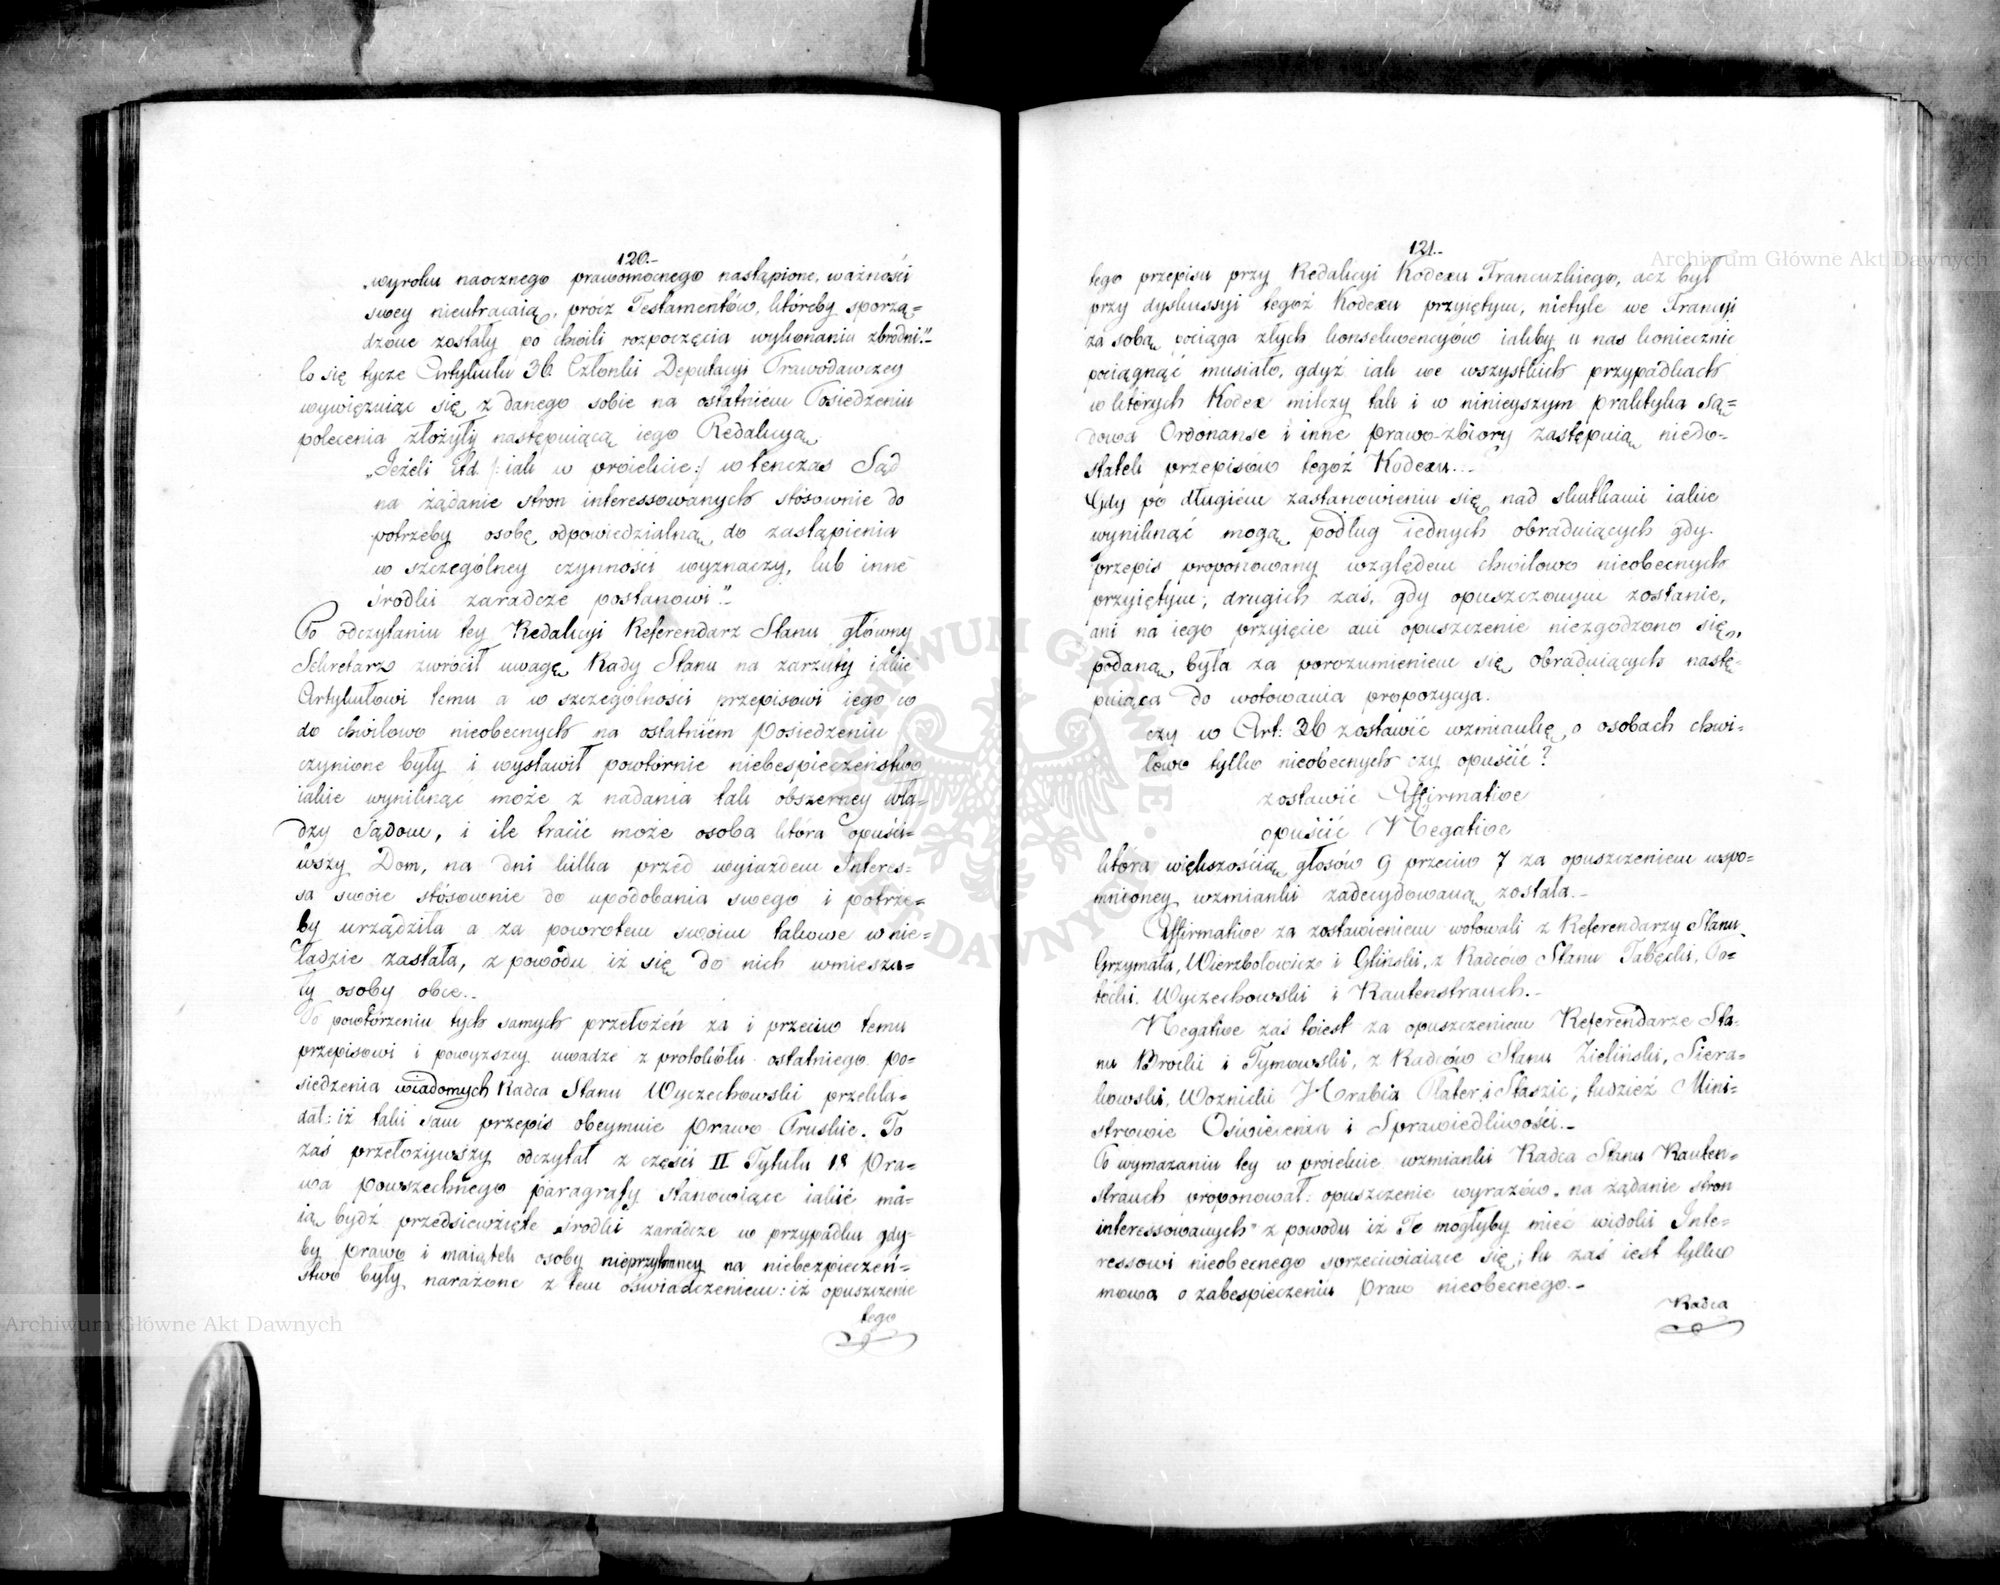 120.-
„wyroku naocznego prawomocnego nastąpione, ważności
swey nieutracaią, prócz Testamentów, któreby sporzą=
dzone zostały po chwili rozpoczęcia wykonaniu zbrodni."-
Co się tycze Artykułu 36. Członki Deputacyi Prawodawczey
wywięzuiąc się z danego sobie na ostatniem Posiedzeniu
polecenia złożyły następuiącą iego Redakcyą
„Jeżeli Etd /: iak w proiekcie :/ wtenczas Sąd
na żądanie stron interessowanych stósownie do
potrzeby osobę odpowiedzialną do zastąpienia
w szczególney czynności wyznaczy, lub inne
środki zaradcze postanowi"-
Po odczytaniu tey Redakcyi Referendarz Stanu główny
Sekretarz zwrócił uwagę Rady Stanu na zarzuty iakie
Artykułowi temu a w szczególności przepisowi iego co
do chwilowo nieobecnych na ostatniem Posiedzeniu
czynione były i wystawił powtórnie niebespieczeństwo
iakie wyniknąć może z nadania tak obszerney wła=
dzy Sądom, i ile tracić może osoba która opuści=
wszy Dom, na dni kilka przed wyiazdem Interes=
sa swoie stósownie do upodobania swego i potrze=
by urządziła a za powrotem swoim takowe w nie=
ładzie zastała, z powodu iż się do nich wmiesza=
ły osoby obce.-
Po powtórzeniu tych samych przełożeń za i przeciw temu
przepisowi i powyższey uwadze z protokółu ostatniego po=
siedzenia wiadomych Radca Stanu Wyczechowski przekła=
dał: iż taki sam przepis obeymuie Prawo Pruskie. To
zaś przełożywszy odczytał z części II Tytułu 18 Pra=
wa powszechnego paragrafy stanowiące iakie ma=
ią bydź przedsięwzięte środki zaradcze w przypadku gdy=
by prawo i maiątek osoby nieprzytomney na niebezpieczeń=
stwo były narażone z tem oświadczeniem: iż opuszczenie
tego
121.-
tego przepisu przy Redakcyi Kodexu Francuzkiego, acz był
przy dyskussyi tegoż Kodexu przyiętym, nietyle we Francyi
za sobą pociąga złych konsekwencyów iakby u nas koniecznie
pociągnąć musiało, gdyż iak we wszystkich przypadkach
w których Kodex milczy tak i w ninieyszym praktyka są=
dowa Ordonanse i inne prawo-zbiory zastępuią niedo=
statek przepisów tegoż Kodexu.-
Gdy po długiem zastanowieniu się nad skutkami iakie
wyniknąć mogą podług iednych obraduiących gdy
przepis proponowany względem chwilowo nieobecnych
przyiętym, drugich zaś, gdy opuszczonym zostanie,
ani na iego przyięcie ani opuszczenie niezgodzono się,
podaną była za porozumieniem się obraduiących nastę=
puiąca do wotowania propozycya.
czy w Art: 36 zostawić wzmiankę o osobach chwi=
lowo tylko nieobecnych czy opuścić?
zostawić Affirmative
opuścić Negative
która większością głosów 9 przeciw 7 za opuszczeniem wspo=
mnioney wzmianki zadecydowaną została.-
Affirmative za zostawieniem wotowali z Referendarzy Stanu
Grzymała, Wierzbołowicz i Gliński, z Radców Stanu Tabęcki, Po=
tocki. Wyczechowski i Rautenstrauch.-
Negative zaś toiest za opuszczeniem Referendarze Sta=
nu Brocki i Tymowski, z Radców Stanu Zieliński, Siera=
kowski, Woznicki Hrabia Plater, i Staszic; tudzież Mini=
strowie Oświecenia i Sprawiedliwości.-
Po wymazaniu tey w proiekcie wzmianki Radca Stanu Rauten=
strauch proponował: opuszczenie wyrazów „na żądanie stron
interessowanych" z powodu iż Te mogłyby mieć widoki Inte=
ressowi nieobecnego sprzeciwiaiące się; tu zaś iest tylko
mowa o zabespieczeniu Praw nieobecnego.-
Radca
Archiwum Główne Akt Dawnych
Archiwum Główne Akt Dawnych
ARCHIWUM GŁÓWNE AKT DAWNYCH